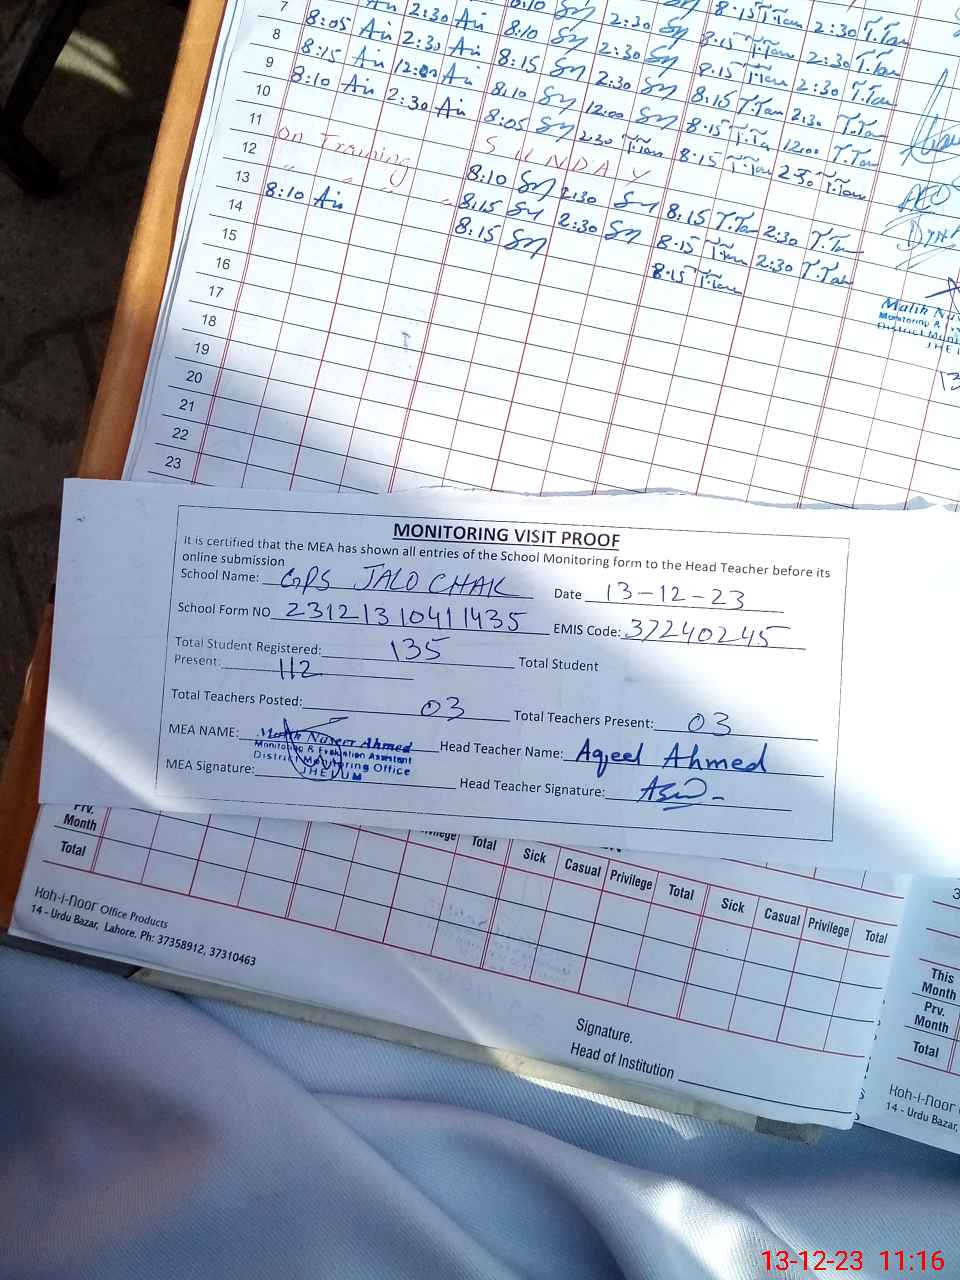 7 8:05 Ain 2:30 Ain 8:10 Sy 2:30 Sy 8:15 T.Tan 2:30 T.Tan
8 8:15 Ain 2:30 Ain 8:10 Sy 2:30 Sy 8:15 T.Tan 2:30 T.Tan
9 8:10 Ain 12:00 Ain 8:15 Sy 2:30 Sy 8:15 T.Tan 2:30 T.Tan
10 2:30 Ain 8:10 Sy 12:00 Sy 8:15 T.Tan 12:00 T.Tan
11 8:05 Sy 2:30 8:15 T.Tan 2:30 T.Tan
12 On Training SUNDAY
13 8:10 Ain 8:10 Sy 2:30 Sy 8:15 T.Tan 2:30 T.Tan
14 8:15 Sy 2:30 Sy 8:15 T.Tan 2:30 T.Tan
15 8:15 Sy 8:15 T.Tan
16
17
18
19
20
21
22
23
AEO
Malik Nas
Monitoring &
District Moni
JHEL
13
MONITORING VISIT PROOF
It is certified that the MEA has shown all entries of the School Monitoring form to the Head Teacher before its
online submission
School Name: GPS JALO CHAK Date 13-12-23
School Form NO 23121310411435 EMIS Code: 37240245
Total Student Registered: 135 Total Student
Present: 112
Total Teachers Posted: 03 Total Teachers Present: 03
MEA NAME: Malik Naseer Ahmed Head Teacher Name: Aqeel Ahmed
Monitoring & Evaluation Assistant
District Monitoring Office
JHELUM
MEA Signature: Head Teacher Signature:
Prv.
Month
Total
Privilege Total Sick Casual Privilege Total Sick Casual Privilege Total
This
Month
Prv.
Month
Total
Koh-i-noor Office Products
14 - Urdu Bazar, Lahore. Ph: 37358912, 37310463
Signature.
Head of Institution
Koh-i-noor
14 - Urdu Bazar,
13-12-23 11:16